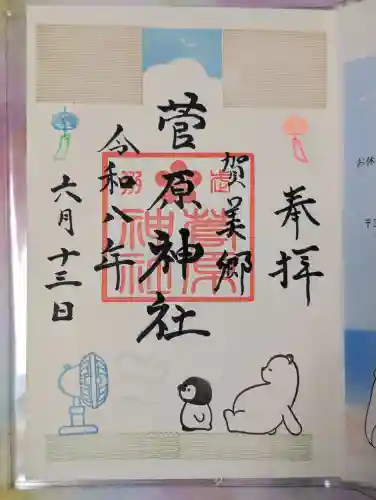 奉拝
賀美郷
菅原神社
令和八年
六月十三日
お休
〒